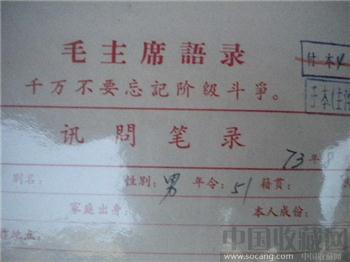 毛主席語录
付本
千万不要忘記阶級斗爭。
子本
讯問笔录
73年8
别名： 性别：男 年令：51 籍贯：
家庭出身： 本人成份：
地点：
中国收藏网
http://www.socang.com